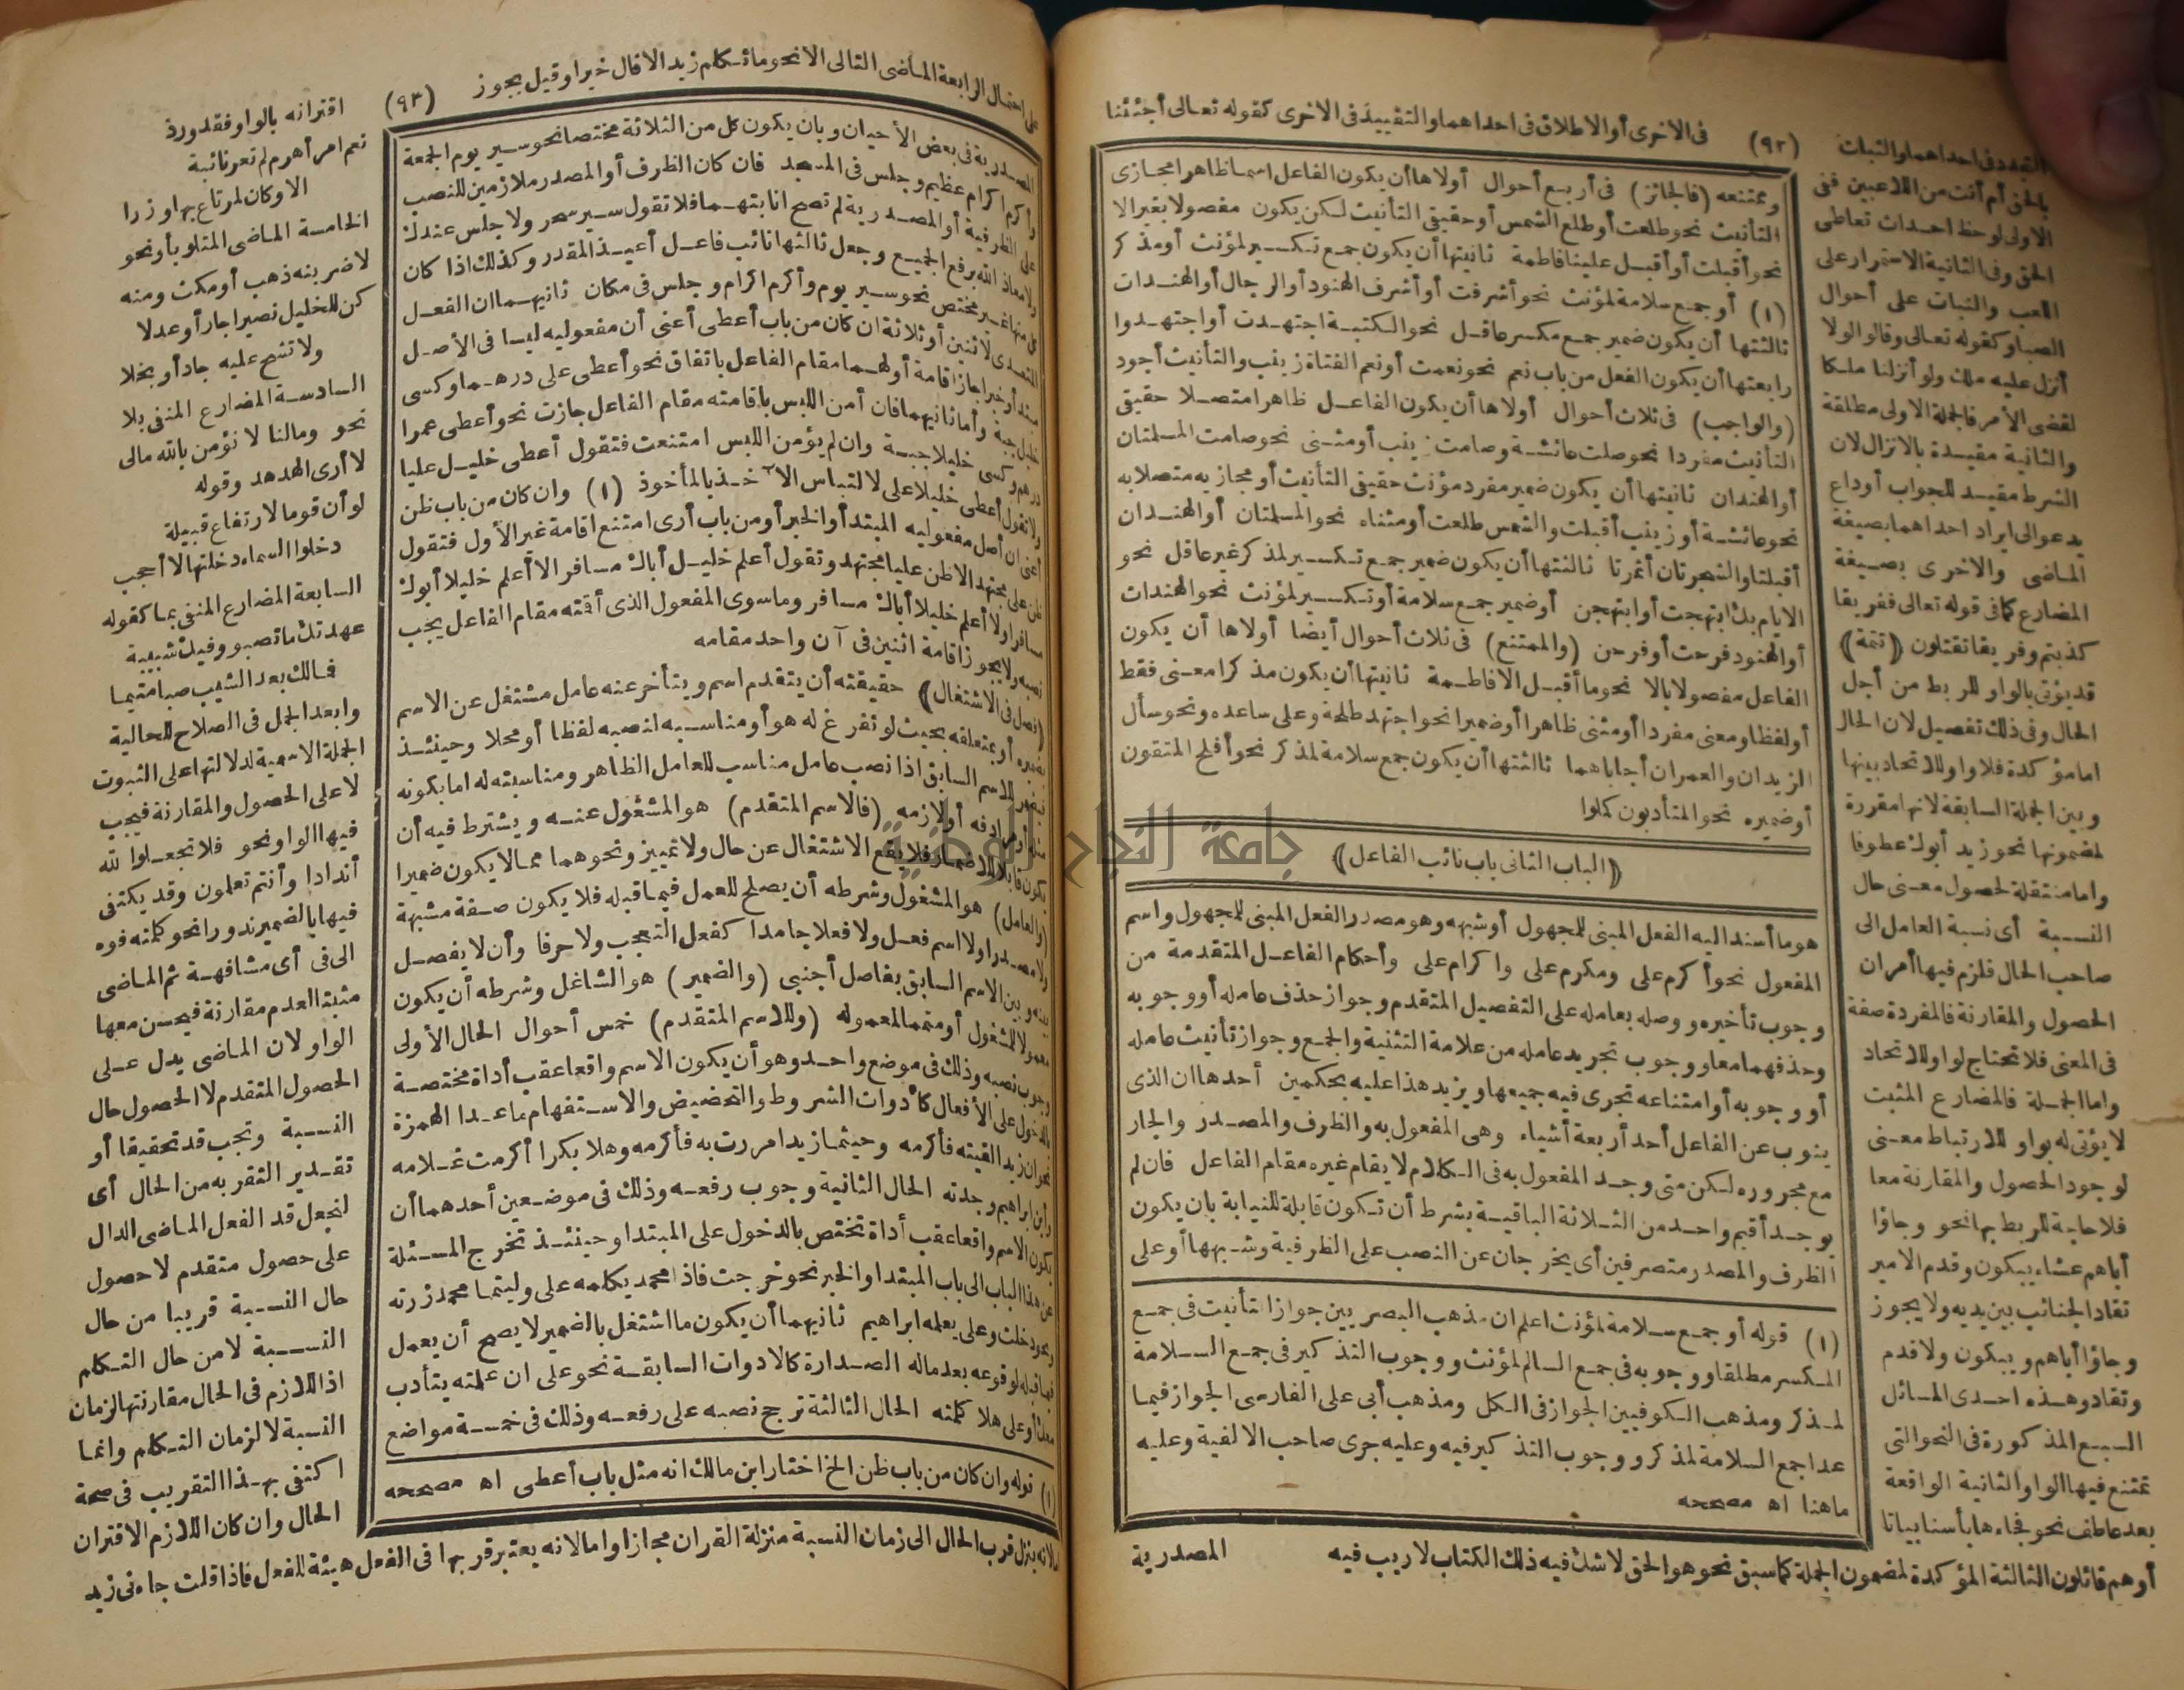 فى الاخرى أو الاطلاق فى احداهما والتقييد فى الاخرى كقوله تعالى أجئتنا
(٩٢)
التجدد فى احداهما والثبات
بالحق أم أنت من اللاعبين فنى
الاولى لوحظ احداث تعاطى
الحق وفى الثانية الاستمرار على
اللعب والثبات على أحوال
الصبا وكقوله تعالى وقالوا لولا
أنزل عليه ملك ولو أنزلنا ملكا
لقضى الأمر فالجملة الاولى مطلقة
والثانية مقيدة بالانزال لان
الشرط مقيد للجواب أوداع
يدعو الى ايراد احداهما بصيغة
الماضى والاخرى بصيغة
المضارع كما فى قوله تعالى ففريقا
كذبتم وفريقا تقتلون (تتمة)
قد يؤتى بالواو للربط من أجل
الحال وفى ذلك تفصيل لان الحال
اما مؤكدة فلا واو للاتحاد بينها
وبين الجملة السابقة لانها مقررة
لمضمونها نحو زيد أبوك عطوفا
واما منتقلة لحصول معنى حال
النسبة أى نسبة العامل الى
صاحب الحال فلزم فيها أمران
الحصول والمقارنة فالمفردة صفة
فى المعنى فلا تحتاج لواو للاتحاد
واما الجملة فالمضارع المثبت
لا يؤتى له بواو للارتباط معنى
لوجود الحصول والمقارنة معا
فلا حاجة للربط بها نحو وجاؤا
أباهم عشاء يبكون وقدم الامير
تقاد الجنائب بين يديه ولا يجوز
وجاؤا أباهم ويبكون ولا قدم
وتقاد وهذه احدى المسائل
السبع المذكورة فى النحو التى
تمتنع فيها الواو الثانية الواقعة
بعد عاطف نحو فجاءها بأسنا بياتا
أو هم قائلون الثالثة المؤكدة لمضمون الجملة كما سبق نحو هو الحق لاشك فيه ذلك الكتاب لا ريب فيه
وممتنعه (فالجائز) فى أربع أحوال أولاها أن يكون الفاعل اسما ظاهرا مجازى
التأنيث نحو طلعت أو طلع الشمس أو حقيقى التأنيث لكن يكون مفصولا بغير الا
نحو أقبلت أو أقبل علينا فاطمة ثانيتها أن يكون جمع تكسير لمؤنث أو مذكر
(١) أو جمع سلامة لمؤنث نحو أشرفت أو أشرف الهنود أو الرجال أو الهندات
ثالثتها أن يكون ضمير جمع مكسر عاقل نحو الكتبة اجتهدت أو اجتهدوا
رابعتها أن يكون الفعل من باب نعم نحو نعمت أو نعم الفتاة زينب والتأنيث أجود
(والواجب) فى ثلاث أحوال أولاها أن يكون الفاعل ظاهرا متصلا حقيقى
التأنيث مفردا نحو صلت عائشة وصامت زينب أو مثنى نحو صامت المسلمتان
أو الهندان ثانيتها أن يكون ضمير مفرد مؤنث حقيقى التأنيث أو مجازيه متصلا به
نحو عائشة أو زينب أقبلت والشمس طلعت أو مثناه نحو المسلمتان أو الهندان
أقبلتا والشجرتان أثمرتا ثالثتها أن يكون ضمير جمع تكسير لمذكر غير عاقل نحو
الايام بك ابتهجت أو ابتهجن أو ضمير جمع سلامة أو تكسير لمؤنث نحو الهندات
أو الهنود فرحت أو فرحن (والممتنع) فى ثلاث أحوال أيضا أولاها أن يكون
الفاعل مفصولا بالا نحو ما أقبل الا فاطمة ثانيتها أن يكون مذكرا معنى فقط
أو لفظا ومعنى مفردا أو مثنى ظاهرا أو ضميرا نحو اجتهد طلحة وعلى ساعده ونحو سأل
الزيدان والعمران أجاباهما ثالثتها أن يكون جمع سلامة لمذكر نحو أفلح المتقون
أو ضميره نحو المتأدبون كملوا
(الباب الثانى باب نائب الفاعل)
هو ما أسند اليه الفعل المبنى للمجهول أو شبهه وهو مصدر الفعل المبنى للمجهول واسم
المفعول نحو أكرم على ومكرم على واكرام على وأحكام الفاعل المتقدمة من
وجوب تأخيره ووصله بعامله على التفصيل المتقدم وجواز حذف عامله أو وجوبه
وحذفهما معا ووجوب تجريد عامله من علامة التثنية والجمع وجواز تأنيث عامله
أو وجوبه أو امتناعه تجرى فيه جميعها ويزيد هذا عليه بحكمين أحدها ان الذى
ينوب عن الفاعل أحد أربعة أشياء وهى المفعول به والظرف والمصدر والجار
مع مجروره لكن متى وجد المفعول به فى الكلام لا يقام غيره مقام الفاعل فان لم
يوجد أقيم واحد من الثلاثة الباقية بشرط أن تكون قابلة للنيابة بان يكون
الظرف والمصدر متصرفين أى يخرجان عن النصب على الظرفية وشبهها أو على
(١) قوله أو جمع سلامة لمؤنث اعلم ان مذهب البصريين جواز التأنيث فى جمع
المكسر مطلقا ووجوبه فى جمع السالم لمؤنث ووجوب التذكير فى جمع السلامة
لمذكر ومذهب الكوفيين الجواز فى الكل ومذهب أبى على الفارسى الجواز فيما
عدا جمع السلامة لمذكر ووجوب التذكير فيه وعليه جرى صاحب الالفية وعليه
ماهنا اه مصححه
المصدرية
على احتمال الرابعة الماضى التالى الا نحو ما تكلم زيد الا قال خيرا وقيل يجوز
(٩٣)
اقترانه بالواو فقد ورد
نعم امرأ هرم لم تعر نائبة
الا وكان لمرتاع بها وزرا
الخامسة الماضى المتلو بأو نحو
لاضربنه ذهب أو مكث ومنه
كن للخليل نصيرا جار أو عدلا
ولا تشح عليه جاد أو بخلا
السادسة المضارع المنفى بلا
نحو ومالنا لا نؤمن بالله مالى
لا أرى الهدهد وقوله
لو أن قوما لارتفاع قبيلة
دخلوا السماء دخلتها لا أحجب
السابعة المضارع المنفى بما كقوله
عهدتك ما تصبو وفيك شبيبة
فمالك بعد الشيب صبا متيما
وابعد الجمل فى الصلاح للحالية
الجملة الاسمية لدلالتها على الثبوت
لا على الحصول والمقارنة فيجب
فيها الواو نحو فلا تجعلوا لله
أندادا وأنتم تعلمون وقد يكتفى
فيها بالضمير ندورا نحو كلمته فوه
الى فى أى مشافهة ثم الماضى
مثبتا لعدم مقارنة فيحسن معها
الواو لان الماضى يدل على
الحصول المتقدم لا الحصول حال
النسبة وتجب قد تحقيقا أو
تقدير التقربه من الحال أى
لتجعل قد الفعل الماضى الدال
على حصول متقدم لا حصول
حال النسبة قريبا من حال
النسبة لا من حال التكلم
اذ اللازم فى الحال مقارنتها لزمان
النسبة لا لزمان التكلم وانما
اكتفى بهذا التقريب فى صحة
الحال وان كان اللازم الاقتران
لانه ينزل قرب الحال الى زمان النسبة منزلة القران مجازا واما لانه يعتبر قربها فى الفعل هيئة للفعل فاذا قلت جاءنى زيد
المصدرية فى بعض الأحيان وبان يكون كل من الثلاثة مختصا نحو سير يوم الجمعة
وأكرم اكرام عظيم وجلس فى المسجد فان كان الظرف أو المصدر ملازمين للنصب
على الظرفية أو المصدرية لم تصح انابتهما فلا تقول سير سحر ولا جلس عندك
ولا معاذ الله برفع الجميع وجعل ثالثها نائب فاعل أعيذ المقدر وكذلك اذا كان
كل منها غير مختص نحو سير يوم وأكرم اكرام وجلس فى مكان ثانيهما ان الفعل
المتعدى لاثنين أو ثلاثة ان كان من باب أعطى أعنى أن مفعوليه ليسا فى الأصل
مبتدأ وخبرا جاز اقامة أولهما مقام الفاعل باتفاق نحو أعطى على درهما وكسى
خليل جبة وأما ثانيهما فان أمن اللبس باقامته مقام الفاعل جازت نحو أعطى عمرا
درهم وكسى خليلا جبة وان لم يؤمن اللبس امتنعت فتقول أعطى خليل عليا
ولا تقول أعطى خليلا على لالتباس الآخذ بالمأخوذ (١) وان كان من باب ظن
أعنى ان أصل مفعوليه المبتدأ والخبر أو من باب أرى امتنع اقامة غير الأول فتقول
ظن على مجتهدا لا ظن عليا مجتهد وتقول أعلم خليل أباك مسافرا لا أعلم خليلا أبوك
مسافرا ولا أعلم خليلا أباك مسافر وما سوى المفعول الذى أقمته مقام الفاعل يجب
نصبه ولا يجوز اقامة اثنين فى آن واحد مقامه
(فصل فى الاشتغال) حقيقته أن يتقدم اسم ويتأخر عنه عامل مشتغل عن الاسم
بضميره أو بمتعلقه بحيث لو تفرغ له هو أو مناسبه لنصبه لفظا أو محلا وحينئذ
فيضمر للاسم السابق اذا نصب عامل مناسب للعامل الظاهر ومناسبته له اما بكونه
مثله أو مرادفه أو لازمه (فالاسم المتقدم) هو المشغول عنه ويشترط فيه أن
يكون قابلا للاضمار فلا يقع الاشتغال عن حال ولا تمييز ونحوهما مما لا يكون ضميرا
(والعامل) هو المشغول وشرطه أن يصلح للعمل فيما قبله فلا يكون صفة مشبهة
ولا مصدرا ولا اسم فعل ولا فعلا جامدا كفعل التعجب ولا حرفا وأن لا يفصل
بينه وبين الاسم السابق بفاصل أجنبى (والضمير) هو الشاغل وشرطه أن يكون
معمولا للمشغول أو متمما لمعموله (وللاسم المتقدم) خمس أحوال الحال الأولى
وجوب نصبه وذلك فى موضع واحد وهو أن يكون الاسم واقعا عقب أداة مختصة
بالدخول على الأفعال كأدوات الشروط والتحضيض والاستفهام بماعدا الهمزة
نحو ان زيد القيته فأكرمه وحيثما زيدا مررت به فأكرمه وهلا بكرا أكرمت غلامه
وأين ابراهيم وجدته الحال الثانية وجوب رفعه وذلك فى موضعين أحدهما أن
يكون الاسم واقعا عقب أداة تختص بالدخول على المبتدا وحينئذ تخرج المسئلة
عن هذا الباب الى باب المبتدا والخبر نحو خرجت فاذا محمد يكلمه على وليتما محمد زرته
ونحو دخلت وعلى يعلمه ابراهيم ثانيهما أن يكون ما اشتغل بالضمير لا يصح أن يعمل
فيما قبله لوقوعه بعد ماله الصدارة كالادوات السابقة نحو على ان علمته يتأدب
معك أو على هلا كلمته الحال الثالثة ترجح نصبه على رفعه وذلك فى خمسة مواضع
(١) قوله وان كان من باب ظن الخ اختار ابن مالك انه مثل باب أعطى اه مصححه
جامعة النجاح الوطنية